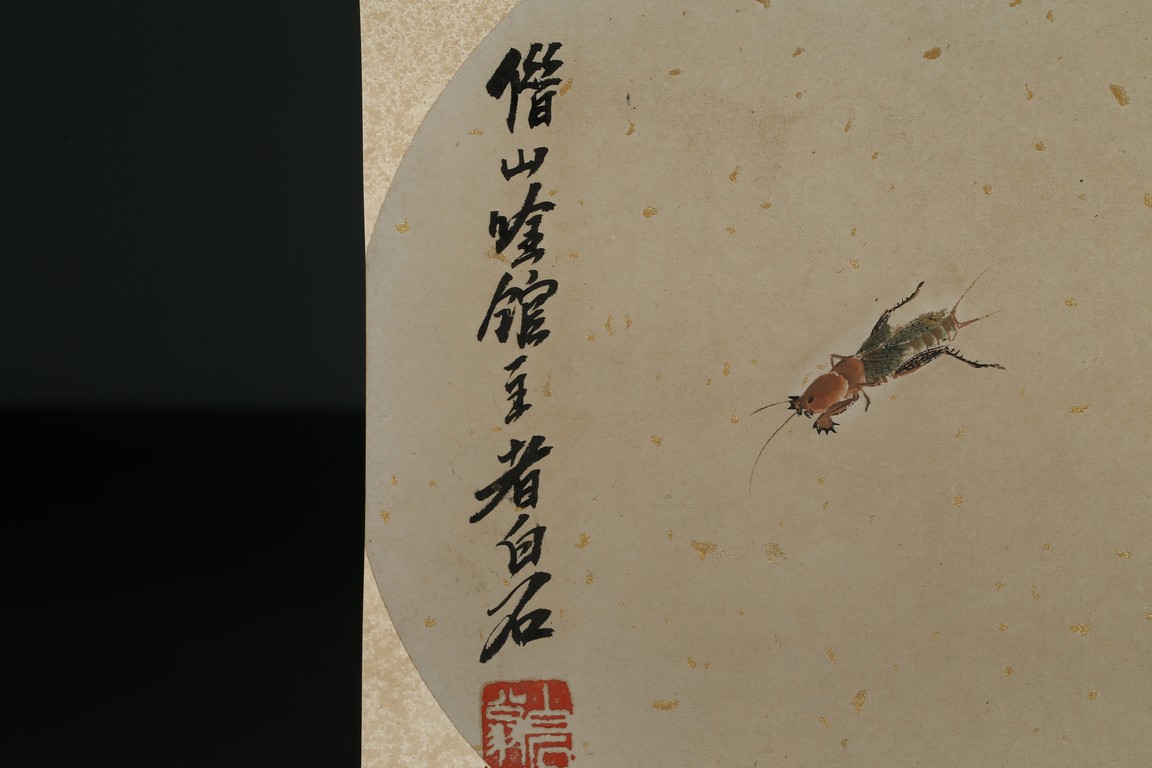 借山唫館主者白石